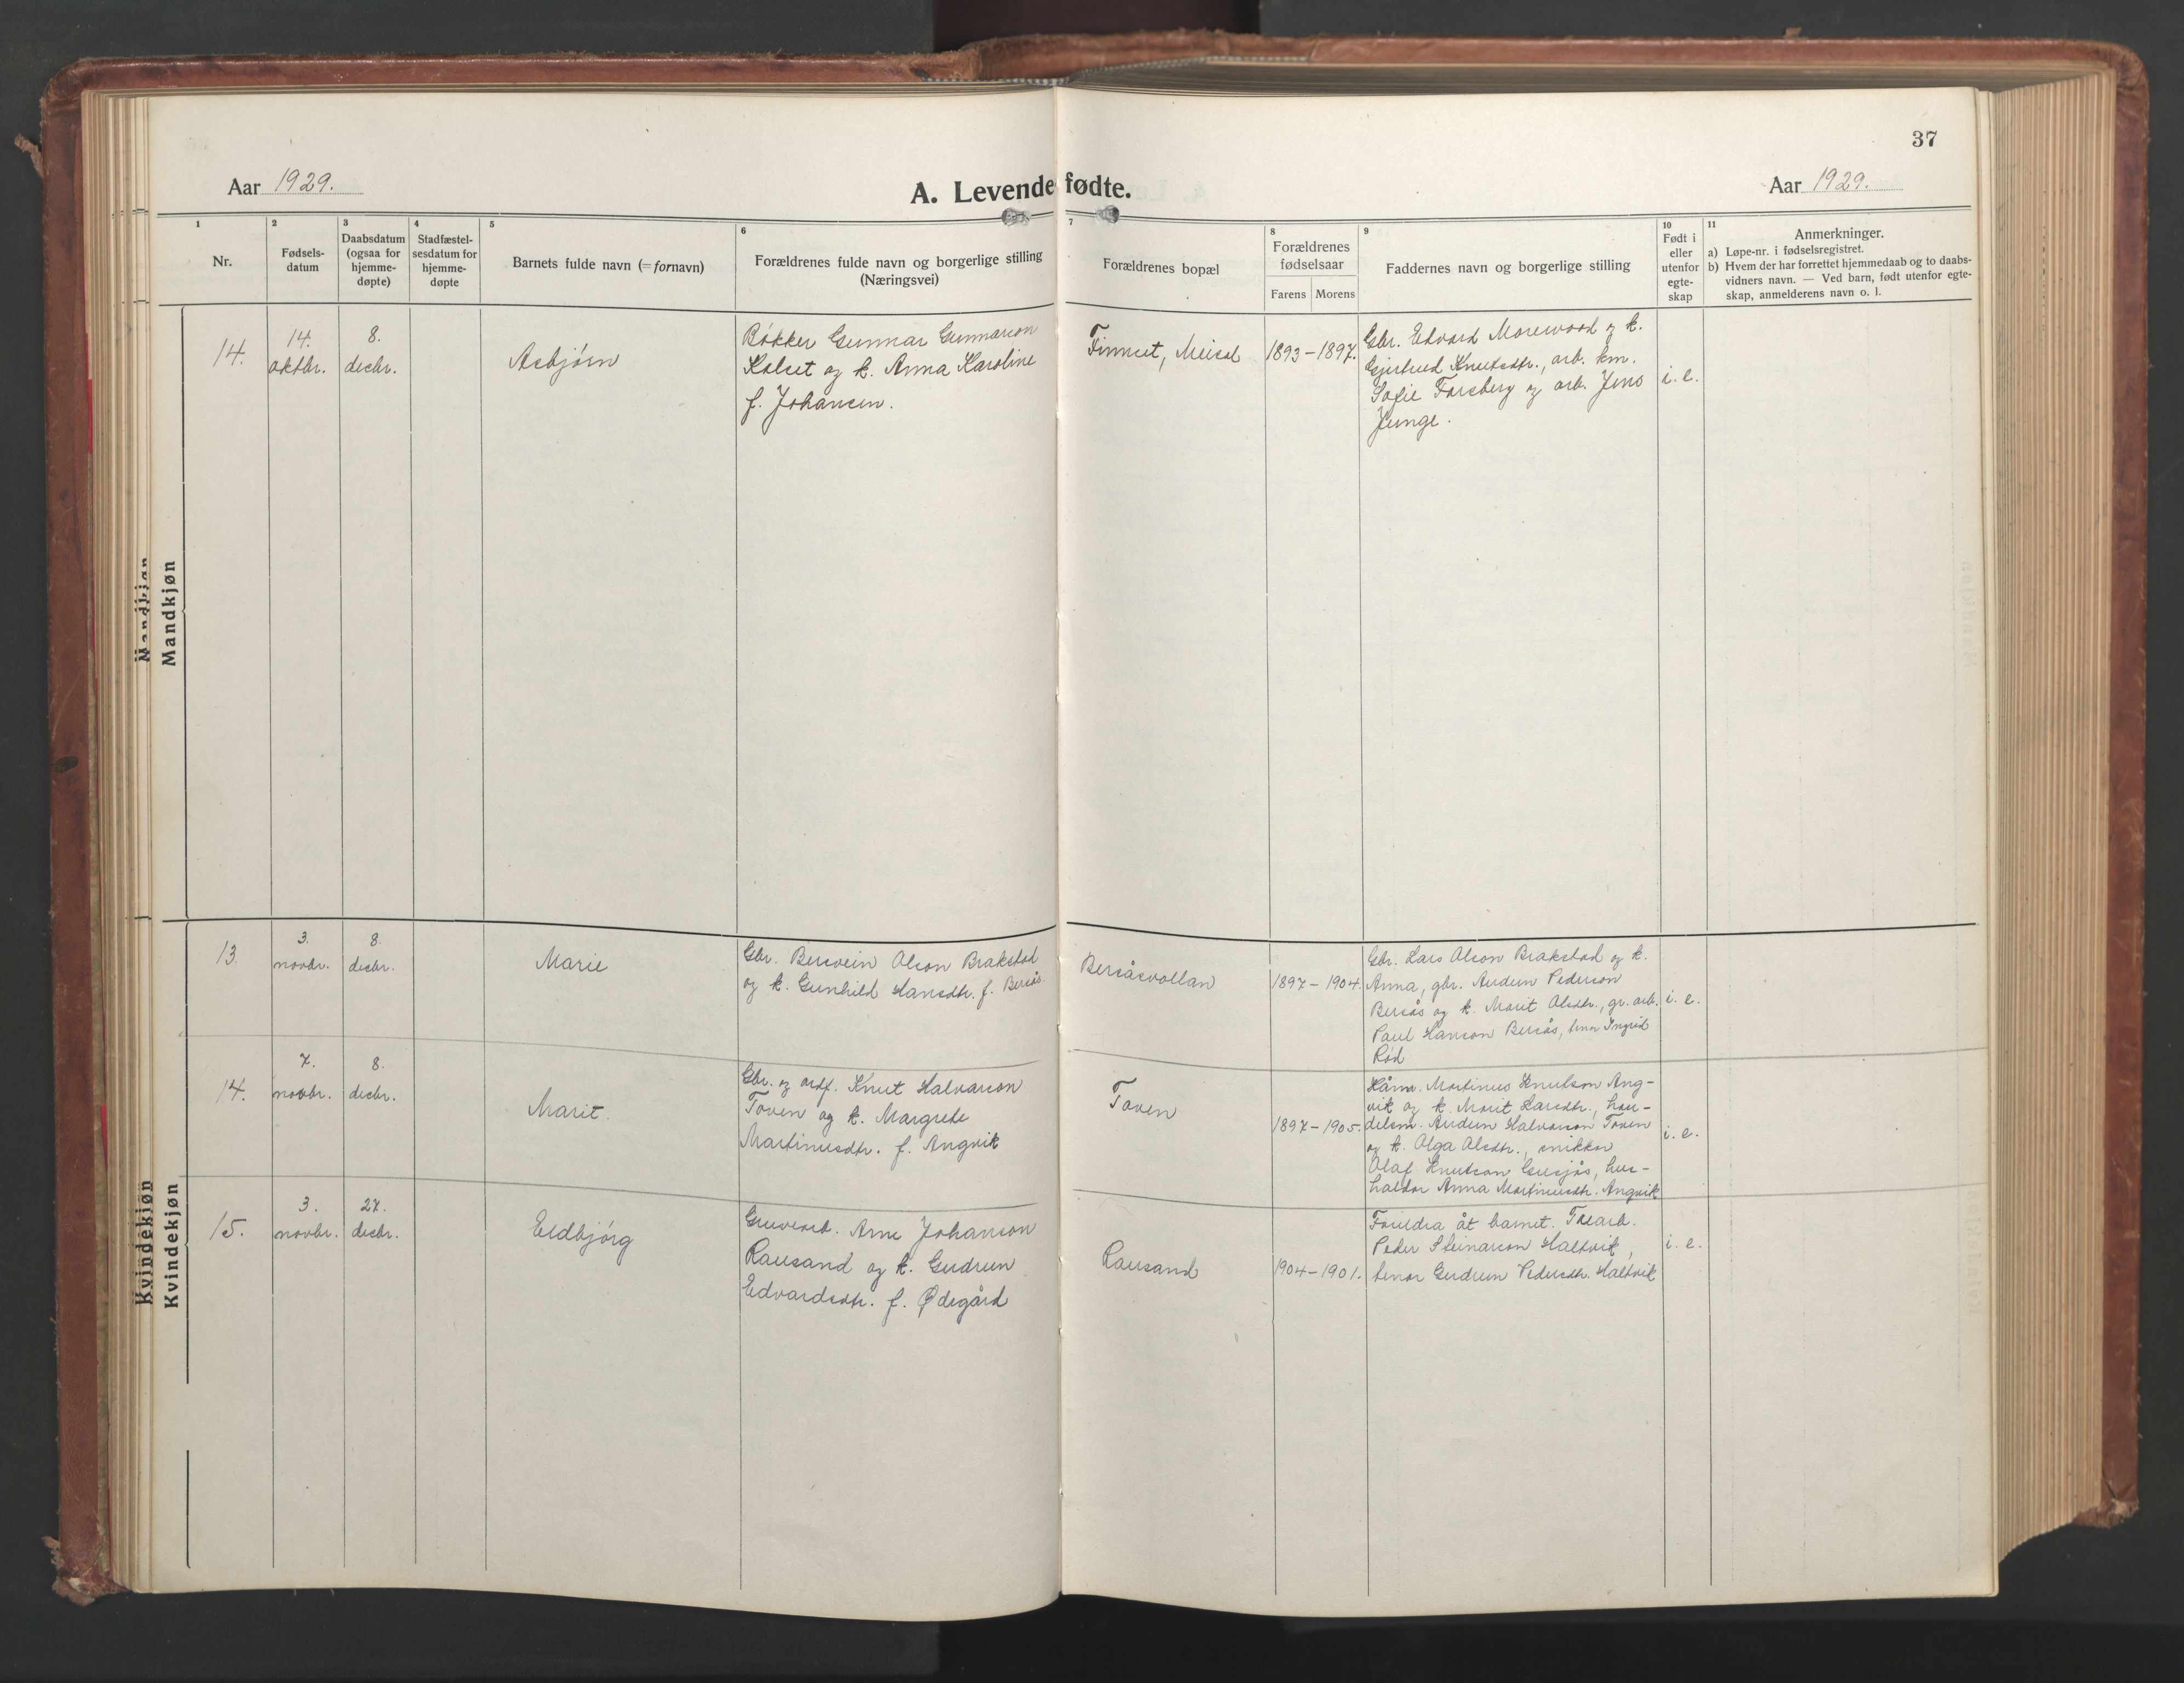 37
Aar 1929.
A. Levendefødte.
Aar 1929.
1
2
3
4
5
6
7
8
9
10
11
Nr.
Fødsels-
datum
Daabsdatum
(ogsaa for
hjemme-
døpte)
Stadfæstel-
sesdatum for
hjemme-
døpte
Barnets fulde navn (= fornavn)
Forældrenes fulde navn og borgerlige stilling
(Næringsvei)
Forældrenes bopæl
Forældrenes
fødselsaar
Farens
Morens
Faddernes navn og borgerlige stilling
Født i
eller
utenfor
egte-
skap
Anmerkninger.
a) Løpe-nr. i fødselsregistret.
b) Hvem der har forrettet hjemmedaab og to daabs-
vidners navn. — Ved barn, født utenfor egte-
skap, anmelderens navn o. l.
Mandkjøn
Mandkjøn
14.
14.
oktbr.
8.
desbr.
Asbjørn
Bøkker Gunnar Gunnarson
Kolset og k. Anna Karoline
f. Johansen.
Finnset, Meisal
1893-1897.
Gbr. Edvard Morewood og k.
Gjertrud Knutsdtr., arb. km.
Sofie Forsberg og arb. Jens
Junge.
i. e.
Kvindekjøn
Kvindekjøn
13.
3.
novbr.
8.
desbr.
Marie
Gbr. Bersvein Olson Brakstad
og k. Gunhild Hansdtr. f. Bersås.
Bersåsvollan
1897-1904.
Gbr. Lars Olson Brakstad og k.
Anna, gbr. Audun Pederson
Bersås og k. Marit Olsdtr., gr. arb.
Paul Hanson Bersås, tenar Ingrid
Rød
i. e.
14.
7.
novbr.
8.
desbr.
Marit.
Gbr. og ordf. Knut Halvarson
Toven og k. Margrete
Martinusdtr. f. Angvik
Toven
1897-1905.
Kårm. Martinus Knutson Ang-
vik og k. Marit Larsdtr., han-
delsm. Audun Halvarson Toven
og k. Olga Olsdtr., snikkar
Olaf Knutson Gusjås, hus-
haldar Anna Martinusdtr. Angvik
i. e.
15.
3.
novbr.
27.
desbr.
Eldbjørg
Gruvearb. Arne Johanson
Rausand og k. Gudrun
Edvardsdtr. f. Ødegård
Rausand
1904-1901.
Foreldra åt barnet. Trearb.
Peder Steinarson Haltvik,
tenar Gudrun Pedersdtr. Haltvik
i. e.